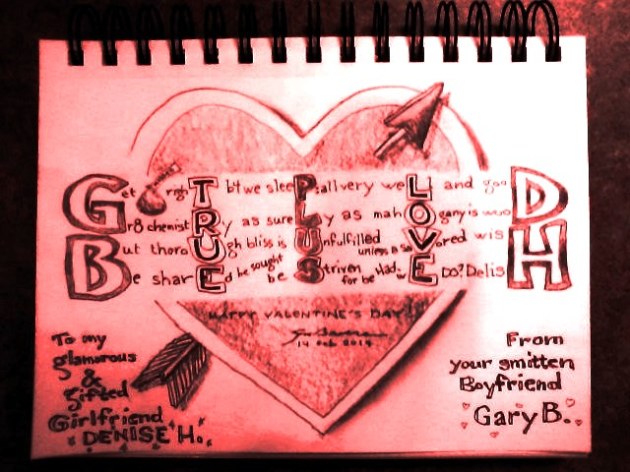 Get rgh T b+we sleeP:all very weL and gooD
Gr8 chemistRy as sureLy as mahOgany is wooD
But thoroUgh bliss is Unfulfilled unless a saVored wisH
Be sharEd he sought be Striven for be had-wE Do? DelisH
HAPPY VALENTINE'S DAY
14 Feb 2014
To my
glamorous
&
gifted
Girlfriend
DENISE H.
From
your smitten
Boyfriend
Gary B.